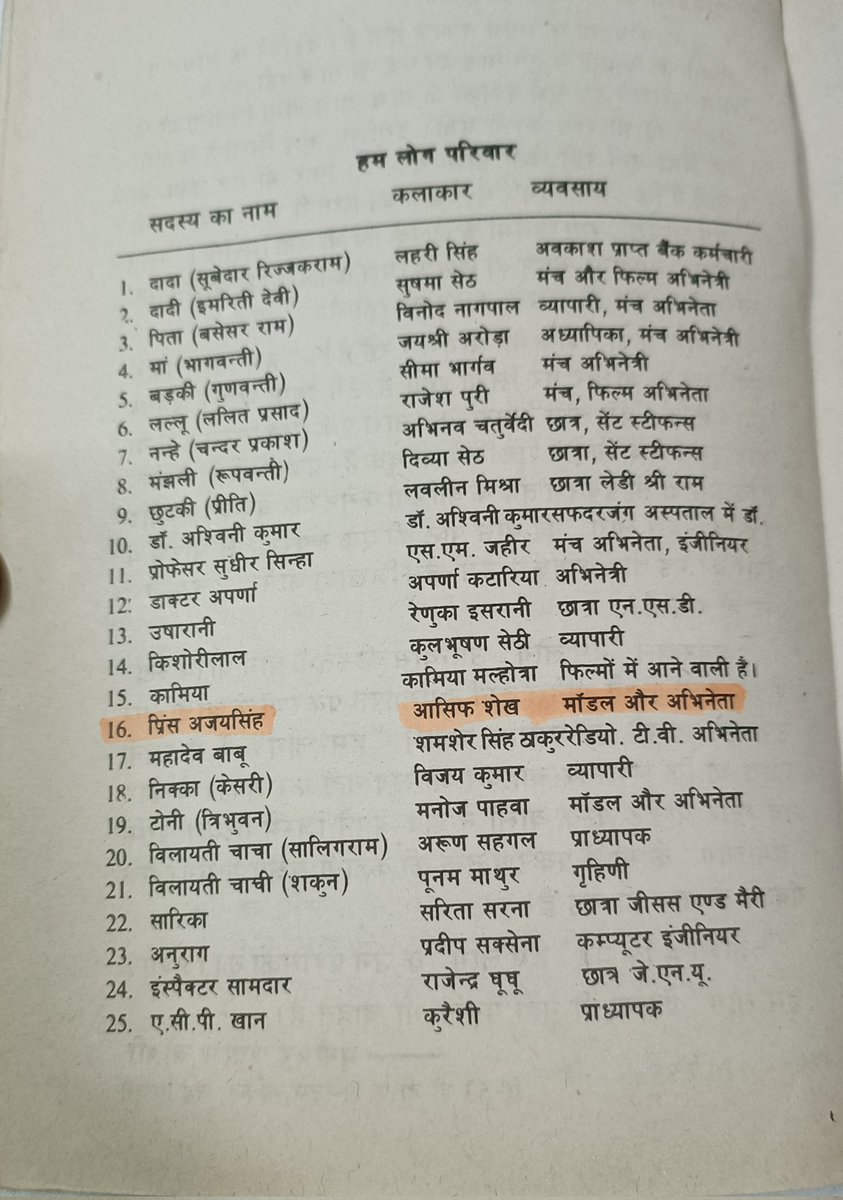 हम लोग परिवार
सदस्य का नाम कलाकार व्यवसाय
1. दादा (सूबेदार रिज्जकराम) लहरी सिंह अवकाश प्राप्त बैंक कर्मचारी
2. दादी (इमरिती देवी) सुषमा सेठ मंच और फिल्म अभिनेत्री
3. पिता (बसेसर राम) विनोद नागपाल व्यापारी, मंच अभिनेता
4. मां (भागवन्ती) जयश्री अरोड़ा अध्यापिका, मंच अभिनेत्री
5. बड़की (गुणवन्ती) सीमा भार्गव मंच अभिनेत्री
6. लल्लू (ललित प्रसाद) राजेश पुरी मंच, फिल्म अभिनेता
7. नन्हे (चन्दर प्रकाश) अभिनव चतुर्वेदी छात्र, सेंट स्टीफन्स
8. मंझली (रूपवन्ती) दिव्या सेठ छात्रा, सेंट स्टीफन्स
9. छुटकी (प्रीति) लवलीन मिश्रा छात्रा लेडी श्री राम
10. डॉ. अश्विनी कुमार डॉ. अश्विनी कुमार सफदरजंग अस्पताल में डॉ.
11. प्रोफेसर सुधीर सिन्हा एस.एम. जहीर मंच अभिनेता, इंजीनियर
12. डाक्टर अपर्णा अपर्णा कटारिया अभिनेत्री
13. उषारानी रेणुका इसरानी छात्रा एन.एस.डी.
14. किशोरीलाल कुलभूषण सेठी व्यापारी
15. कामिया कामिया मल्होत्रा फिल्मों में आने वाली है।
16. प्रिंस अजयसिंह आसिफ शेख मॉडल और अभिनेता
17. महादेव बाबू शमशेर सिंह ठाकुर रेडियो. टी.वी. अभिनेता
18. निक्का (केसरी) विजय कुमार व्यापारी
19. टोनी (त्रिभुवन) मनोज पाहवा मॉडल और अभिनेता
20. विलायती चाचा (सालिगराम) अरूण सहगल प्राध्यापक
21. विलायती चाची (शकुन) पूनम माथुर गृहिणी
22. सारिका सरिता सरना छात्रा जीसस एण्ड मैरी
23. अनुराग प्रदीप सक्सेना कम्प्यूटर इंजीनियर
24. इंस्पैक्टर सामदार राजेन्द्र घूघू छात्र जे.एन.यू.
25. ए.सी.पी. खान कुरैशी प्राध्यापक